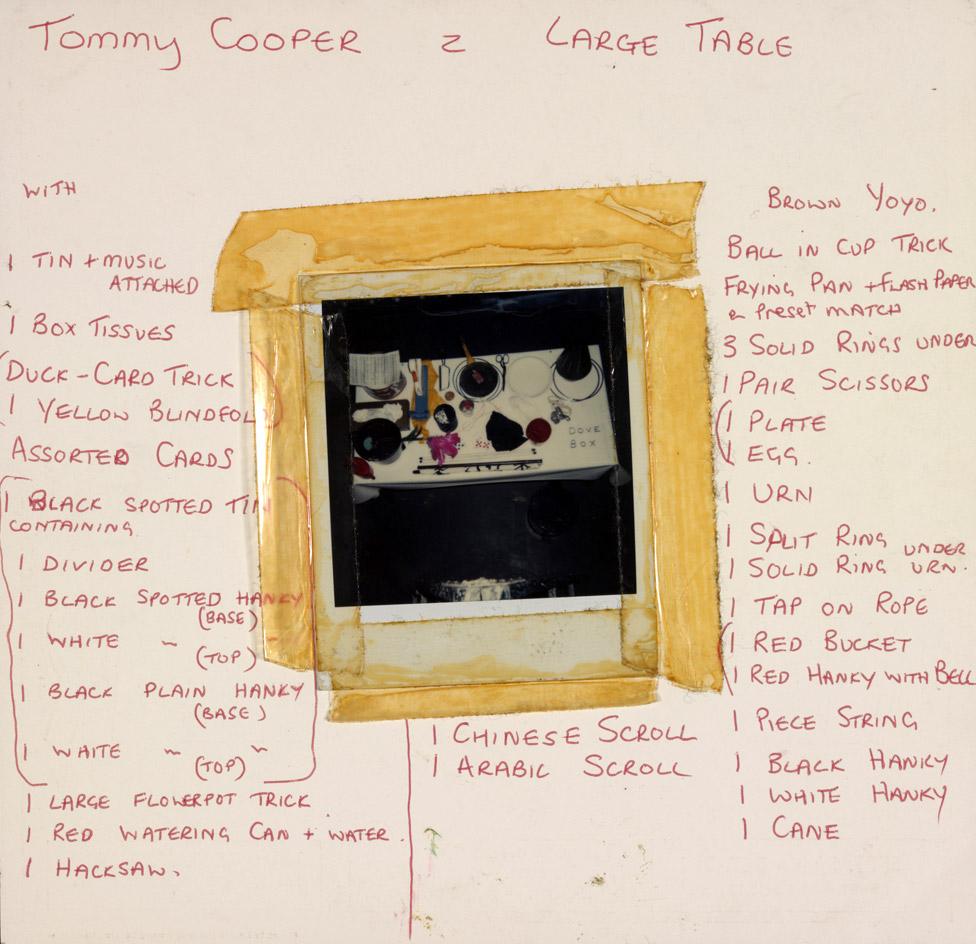 Tommy Cooper 2 Large Table
With
1 Tin + Music
Attached
1 Box Tissues
Duck - Card Trick
1 Yellow Blindfol
Assorted Cards
1 Black Spotted Tin
Containing
1 Divider
1 Black Spotted Hanky
(Base)
1 White " "
(Top)
1 Black Plain Hanky
(Base)
1 White " "
(Top)
1 Large Flowerpot Trick
1 Red Watering Can + Water.
1 Hacksaw.
Dove
Box
1 Chinese Scroll
1 Arabic Scroll
Brown Yoyo.
Ball in Cup Trick
Frying Pan + Flash Paper
& Preset Match
3 Solid Rings Under
1 Pair Scissors
1 Plate
1 Egg.
1 Urn
1 Split Ring Under
1 Solid Ring Urn.
1 Tap on Rope
1 Red Bucket
1 Red Hanky with Bell
1 Piece String
1 Black Hanky
1 White Hanky
1 Cane